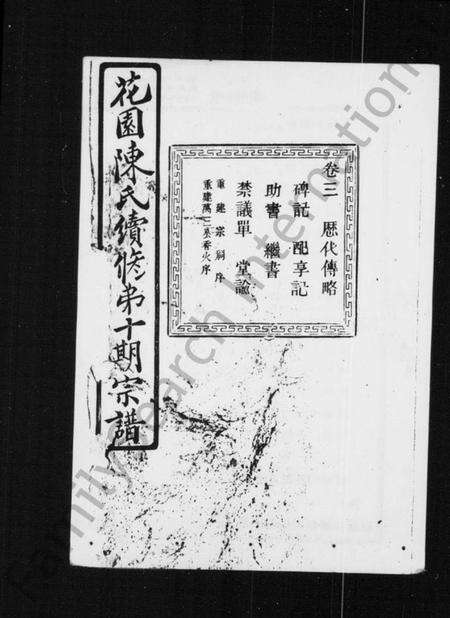 卷三 歷代傳略
碑記 配享記
助書 繼書
禁議單 堂諭
重建宗祠序
重建萬二墓香火序
花園陳氏續修弟十期宗譜
FamilySearch International